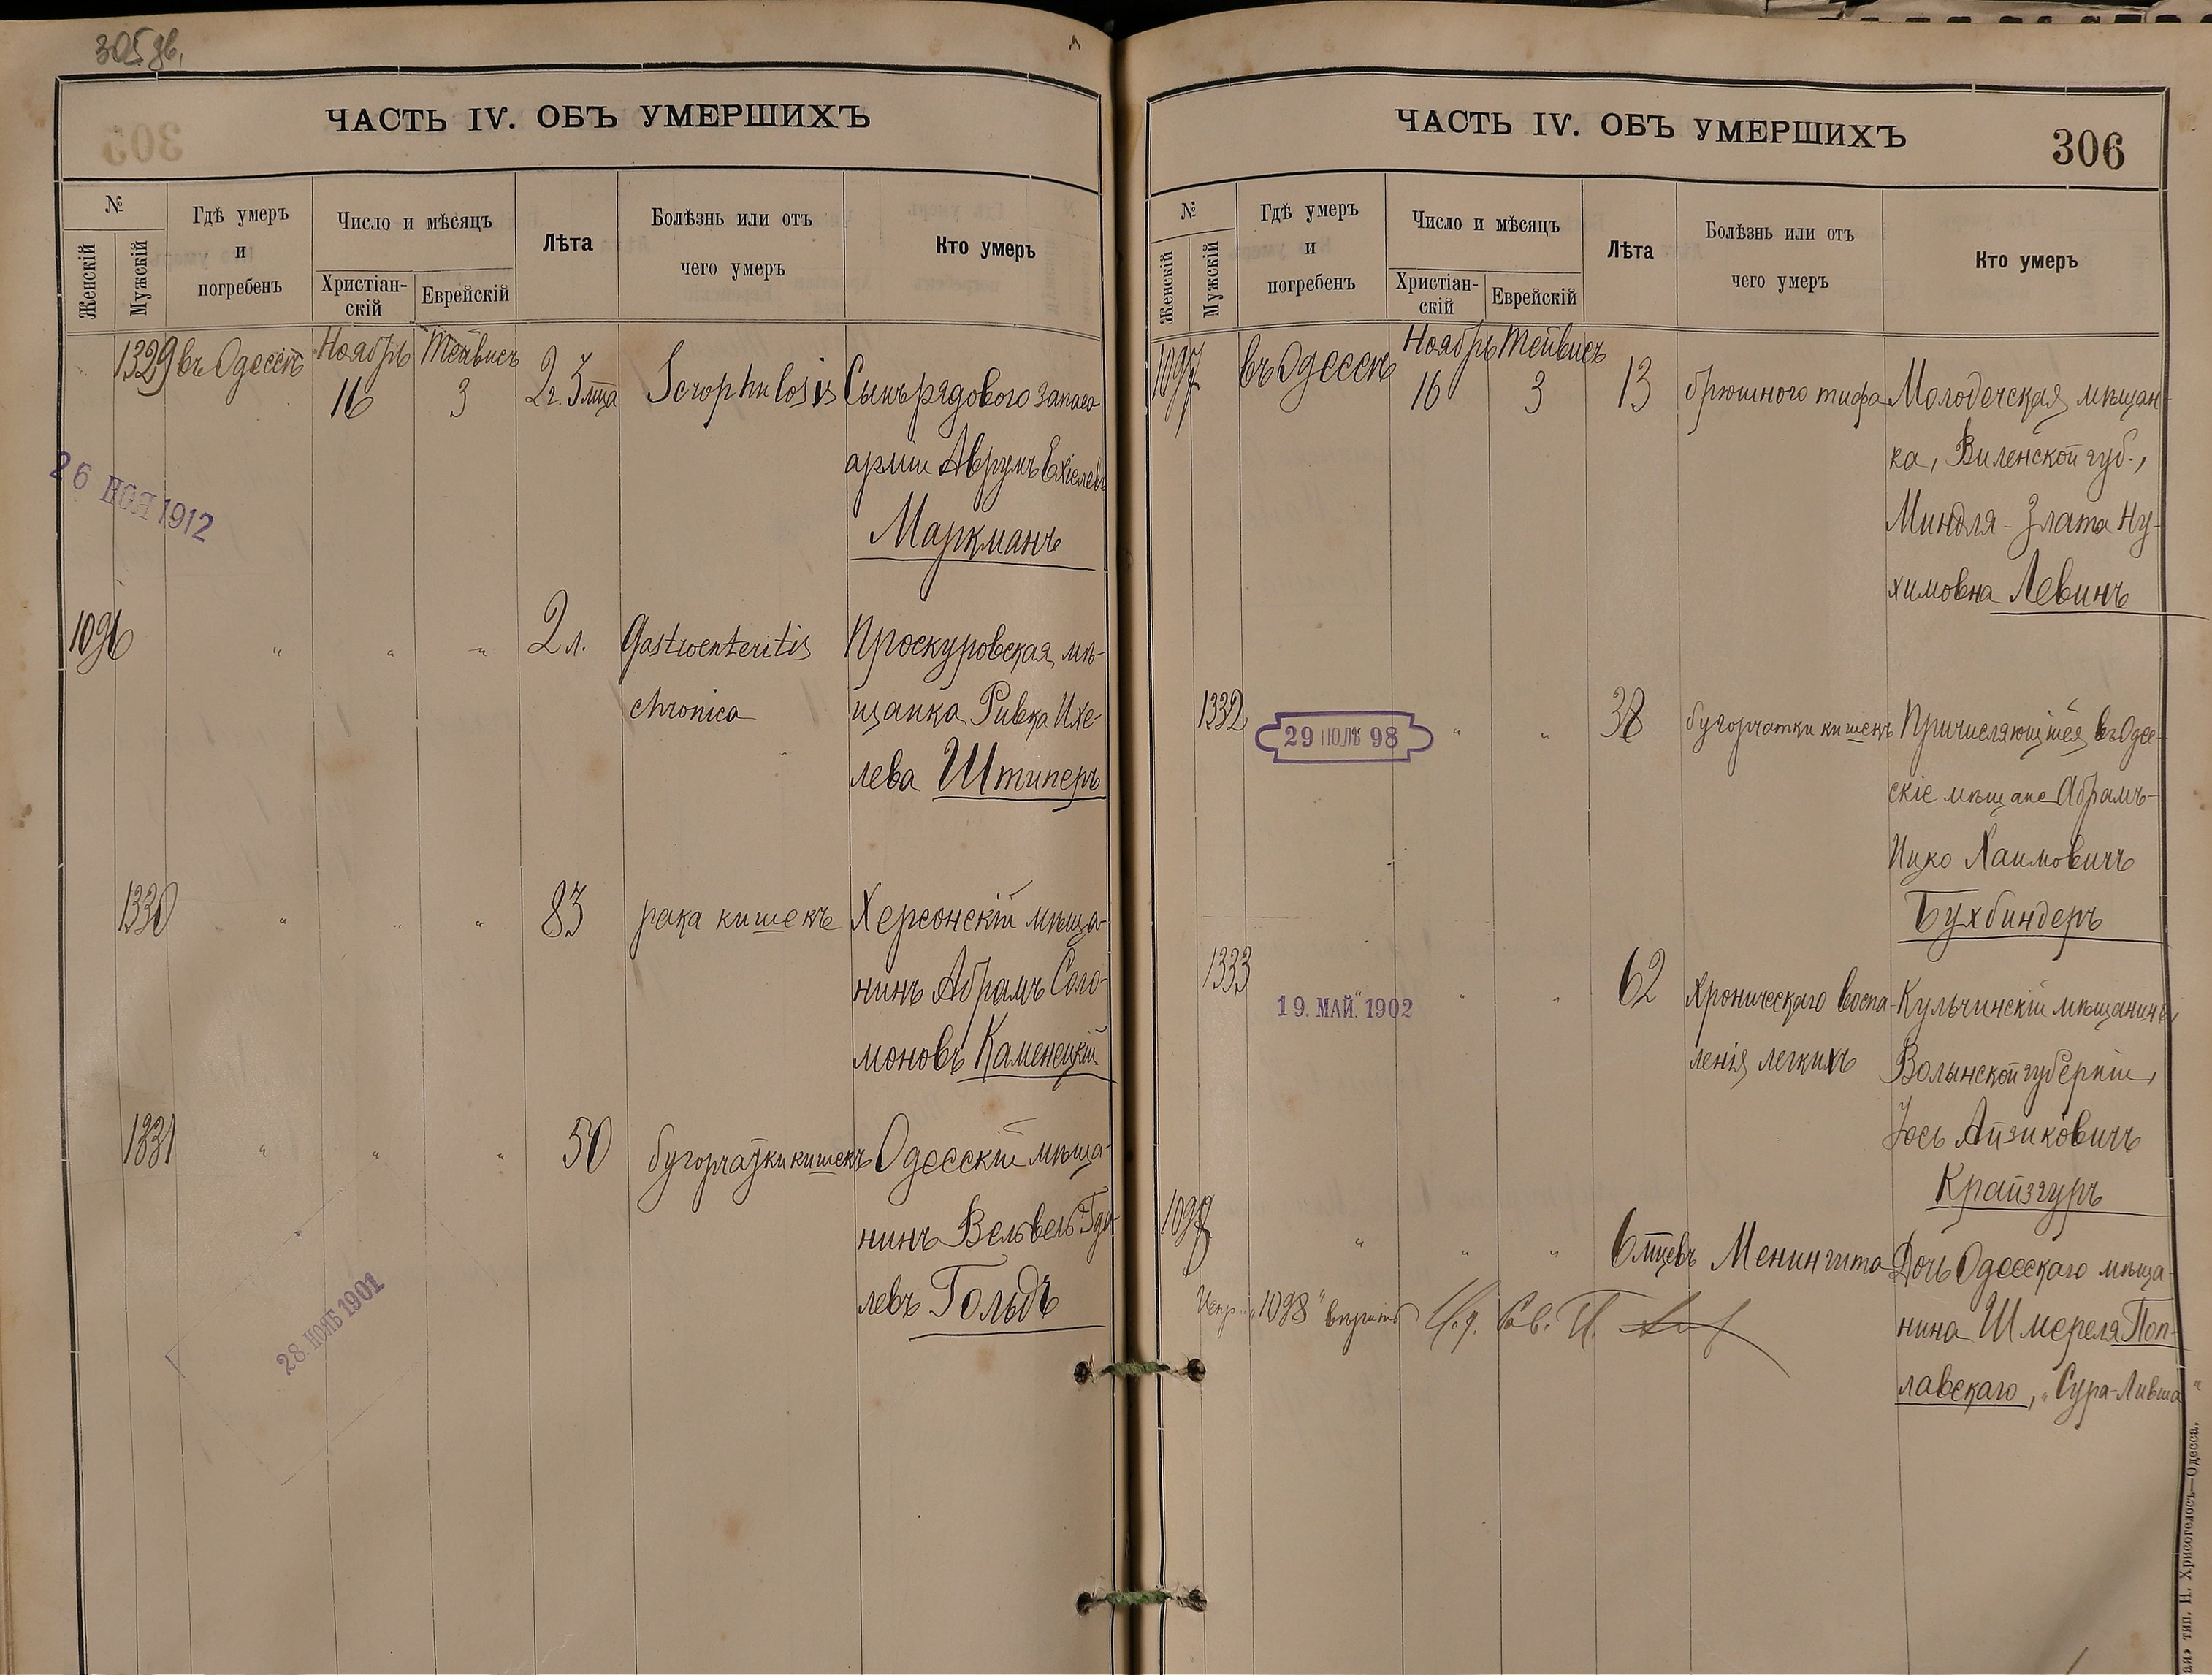 305 об.
ЧАСТЬ IV. ОБЪ УМЕРШИХЪ
№
Женскій
Мужскій
Гдѣ умеръ
и
погребенъ
Число и мѣсяцъ
Христіан-
скій
Еврейскій
Лѣта
Болѣзнь или отъ
чего умеръ
Кто умеръ
1329 въ Одессѣ Ноябрь 16 Тейвисъ 3 2 г. 3 мца Scrophulosis Сынъ рядового запаса
арміи Аврумъ Ехіелевъ
Маркманъ
26 НОЯ 1912
1096 " " " 2 л. Gastroenteritis Проскуровская мѣ-
chronica щанка Ривка Ихе-
лева Штиперъ
1330 " " " 83 рака кишекъ Херсонскій мѣща-
нинъ Абрамъ Соло-
моновъ Каменецкій
1331 " " " 50 бугорчатки кишекъ Одесскій мѣща-
нинъ Вельвель
левъ Гольдъ
28. НОЯБ 1901
ЧАСТЬ IV. ОБЪ УМЕРШИХЪ
306
№
Женскій
Мужскій
Гдѣ умеръ
и
погребенъ
Число и мѣсяцъ
Христіан-
скій
Еврейскій
Лѣта
Болѣзнь или отъ
чего умеръ
Кто умеръ
1097 въ Одессѣ Ноябрь 16 Тейвисъ 3 13 брюшного тифа Молодечская мѣщан-
ка, Виленской губ.,
Миндля-Злата Ну-
химовна Левинъ
1332 29 ІЮЛЯ 98 " " 38 бугорчатки кишекъ Причисляющійся въ Одес-
скіе мѣщане Абрамъ-
Ицко Хаимовичъ
Бухбиндеръ
1333 " " " 62 Хроническаго воспа- Кульчинскій мѣщанинъ,
19. МАЙ. 1902
ленія легкихъ Волынской губерніи,
Іось Айзиковичъ
Крайзгуръ
1098 " " " 6 мцевъ Менингита Дочь Одесскаго мѣща-
нина Шмереля Поп-
лавскаго, "Сура-Ливша"
Испр. "1098" вѣрить И. д. Рав.
тип. И. Хрисогелосъ—Одесса.